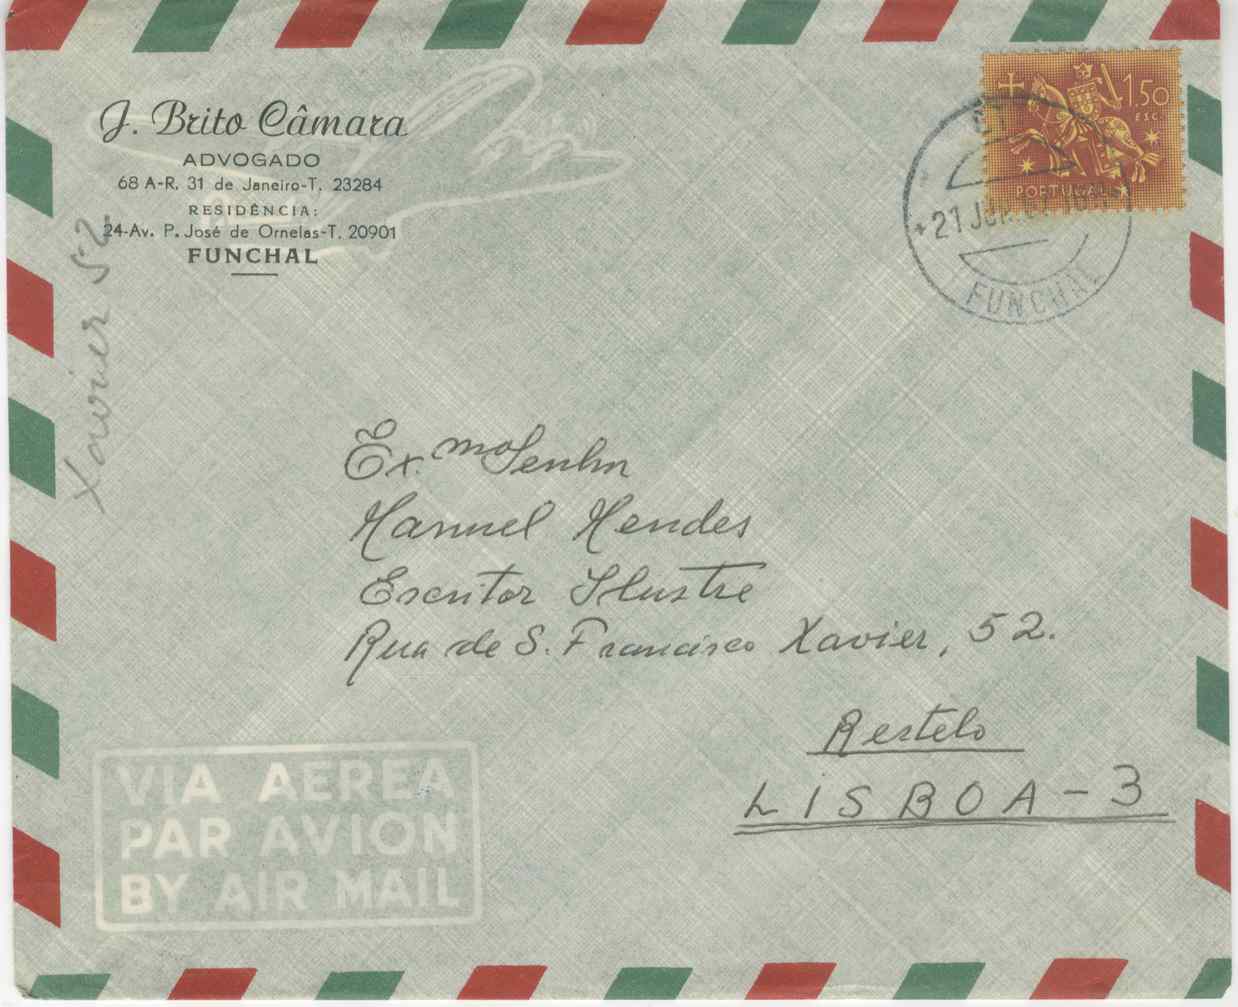 J. Brito Câmara
ADVOGADO
68 A-R. 31 de Janeiro-T. 23284
RESIDÊNCIA:
24-Av. P. José de Ornelas-T. 20901
FUNCHAL
1.50
ESC.
PORTUGAL
*21 JUN.
FUNCHAL
Xavier 52
Ex.mo Senhor
Manuel Mendes
Escritor Ilustre
Rua de S. Francisco Xavier, 52.
Restelo
LISBOA-3
VIA AEREA
PAR AVION
BY AIR MAIL